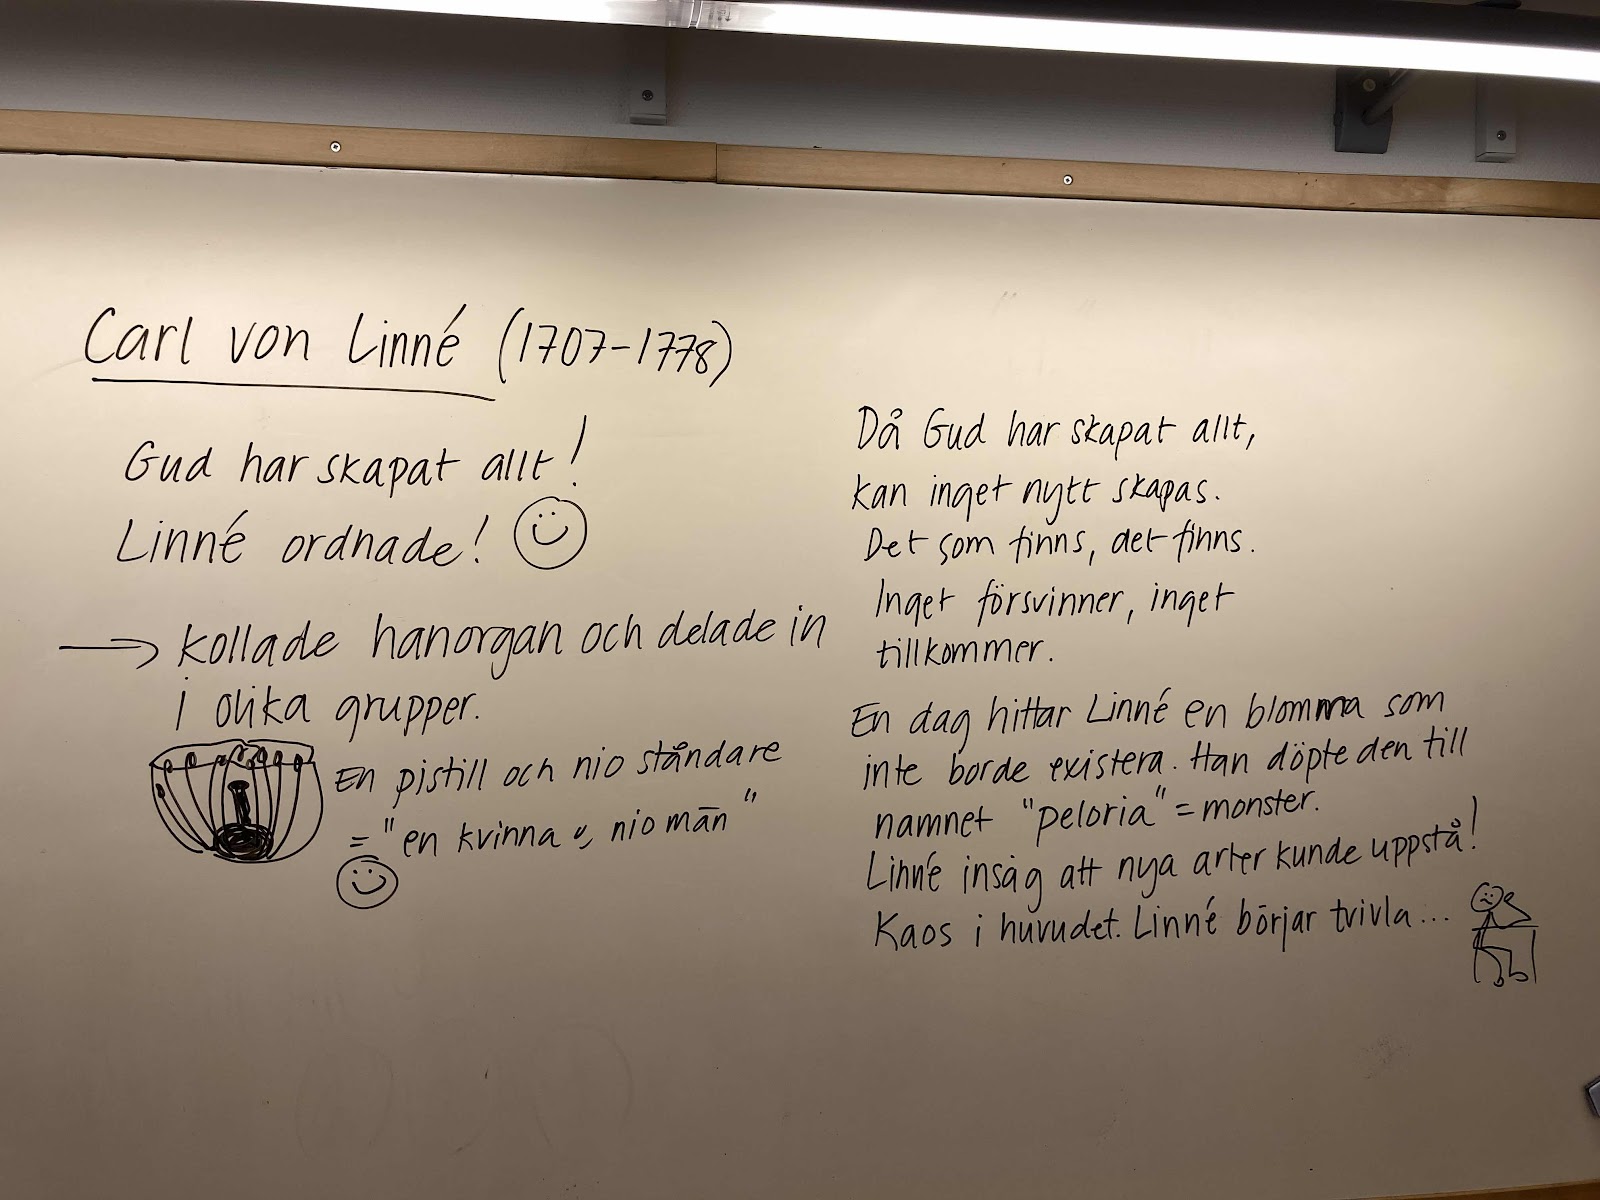 Carl von Linné (1707-1778)
Gud har skapat allt!
Linné ordnade!
→ kollade hanorgan och delade in
i olika grupper.
En pistill och nio ståndare
= "en kvinna o, nio män"
Då Gud har skapat allt,
kan inget nytt skapas.
Det som finns, det finns.
Inget försvinner, inget
tillkommer.
En dag hittar Linné en blomma som
inte borde existera. Han döpte den till
namnet "peloria" = monster.
Linné insåg att nya arter kunde uppstå!
Kaos i huvudet. Linné börjar tvivla...